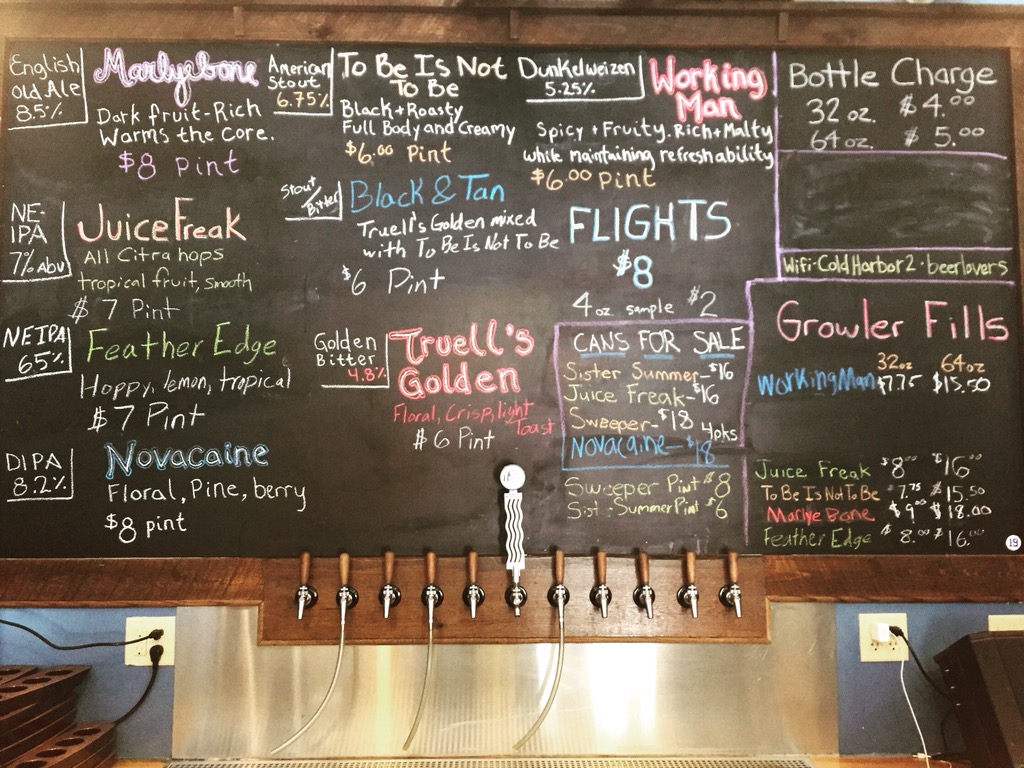 English
Old Ale
8.5%
Marlyebone
Dark fruit-Rich
Warms the core.
$8 Pint
American
Stout
6.75%
To Be Is Not
To Be
Black+Roasty
Full Body and Creamy
$6.00 Pint
Dunkelweizen
5.25%
Working
Man
Spicy + Fruity. Rich+Malty
while maintaining refreshability
$6.00 Pint
NE-
IPA
7% ABV
Juice Freak
All Citra hops
tropical fruit, smooth
$7 Pint
Stout/
Bitter
Black & Tan
Truell's Golden mixed
with To Be Is Not To Be
$6 Pint
FLIGHTS
$8
4oz sample $2
NEIPA
65%
Feather Edge
Hoppy, lemon, tropical
$7 Pint
Golden
Bitter
4.8%
Truell's
Golden
Floral, Crisp, light
Toast
$6 Pint
DIPA
8.2%
Novacaine
Floral, Pine, berry
$8 pint
CANS FOR SALE
Sister Summer-$16
Juice Freak-$16
Sweeper-$18
4pks
Novacaine-$18
Sweeper Pint $8
Sist. Summer Pint $6
Bottle Charge
32 oz. $4.00
64 oz. $5.00
Wifi-ColdHarbor2-beerlovers
Growler Fills
32oz 64oz
Working Man $7.75 $15.50
Juice Freak $8.00 $16.00
To Be Is Not To Be $7.75 $15.50
Marlye Bone $9.00 $18.00
Feather Edge $8.00 $16.00
19